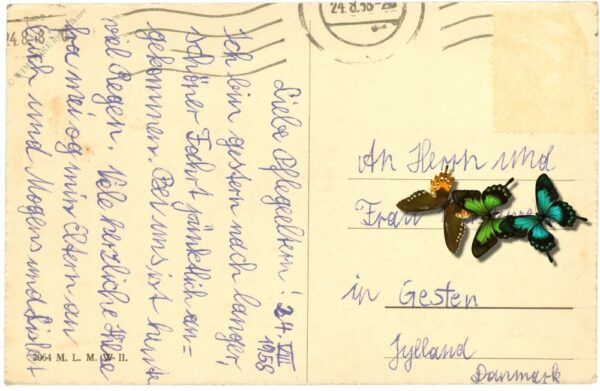 24.8.58
24.8.58
Liebe Pflegeeltern! 24. VIII
1958
Ich bin gestern nach langer,
schöner Fahrt pünktlich an=
gekommen. Bei uns ist heute
viel Regen. Viele herzliche Grüsse
von mei og min Eltern an
Euch und Mogens und
2064 M. L. M. W II.
An Herrn und
Frau
in Gesten
Jylland
Danmark